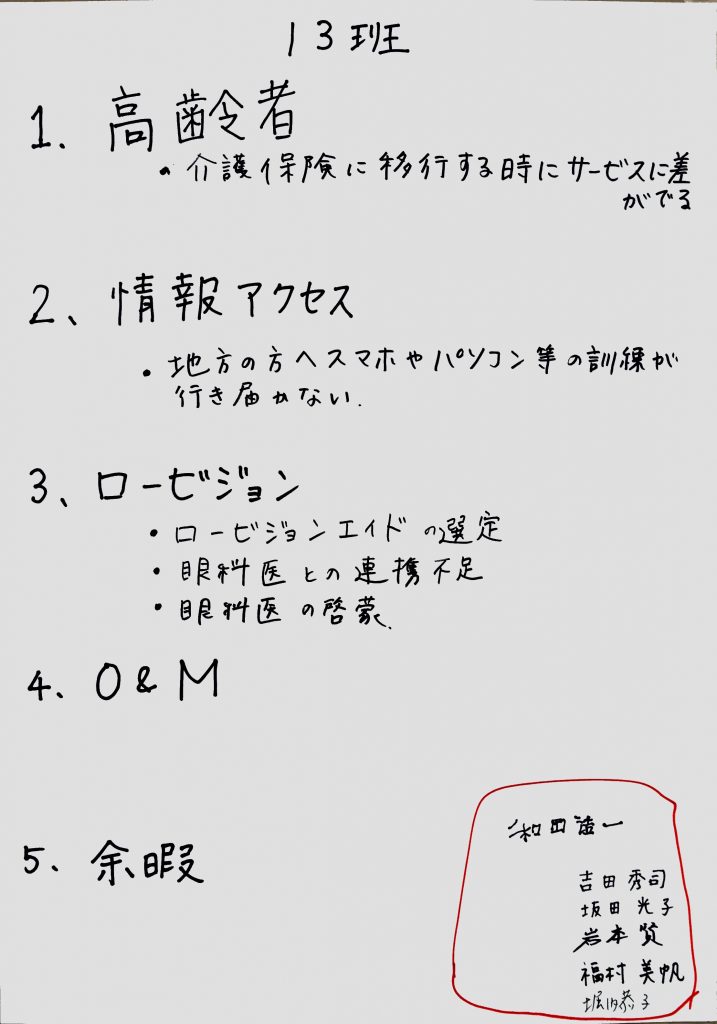 13班
1. 高齢者
・介護保険に移行する時にサービスに差
がでる
2、情報アクセス
・地方の方へスマホやパソコン等の訓練が
行き届かない.
3、ロービジョン
・ロービジョンエイドの選定
・眼科医との連携不足
・眼科医の啓蒙.
4. O&M
5. 余暇
和田浩一
吉田秀司
坂田光子
岩本賢
福村美帆
堀内恭子